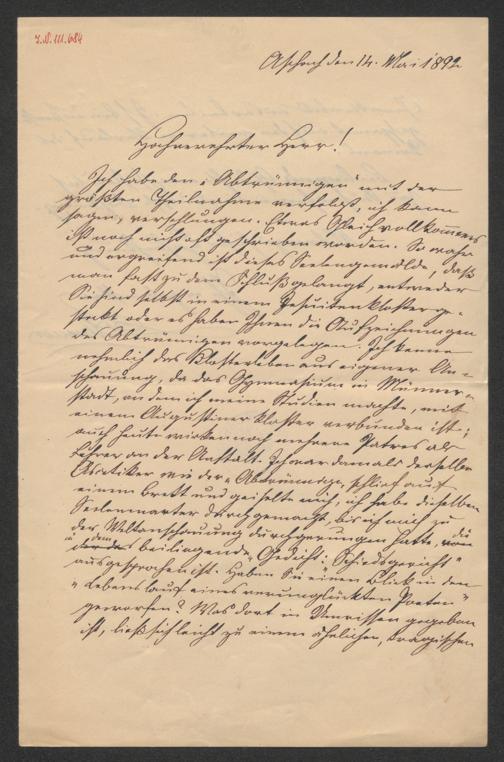 I.N. 111.684
Aschach den 14. Mai 1892
Hochverehrter Herr!
Ich habe den "Abtrünnigen" mit der
größten Theilnahme verfolgt, ich kann
sagen, verschlungen. Etwas Gleich vollkommenes
ist noch nicht oft geschrieben worden. So wahr
und ergreifend ist dieses Seelengemälde, daß
man fast zu dem Schluß gelangt, entweder
Sie sind selbst in einem Jesuitenkloster ge-
steckt oder es haben Ihnen die Aufzeichnungen
des Abtrünnigen vorgelegen. Ich kenne
nehmlich das Klosterleben aus eigener An-
schauung, da das Gymnasium in Münner-
stadt, an dem ich meine Studien machte, mit
einem Augustinerkloster verbunden ist;
auch heute wirken noch mehrere Patres als
Lehrer an der Anstalt. Ich war damals derselbe
Ascetiker wie der "Abtrünnige", schlief auf
einem Brett und geiselte mich, ich habe dieselben
Seelenmarter durchgemacht, bis ich mich zu
der Weltanschauung durchgerungen hatte, die
in dem beiliegende Gedicht: "Schiedsgericht"
ausgesprochen ist. Haben Sie einen Blick in den
"Lebenslauf eines verunglückten Poeten"
geworfen? Was dort in Umrissen gegeben
ist, ließ sich leicht zu einem ähnlichen, tragischen